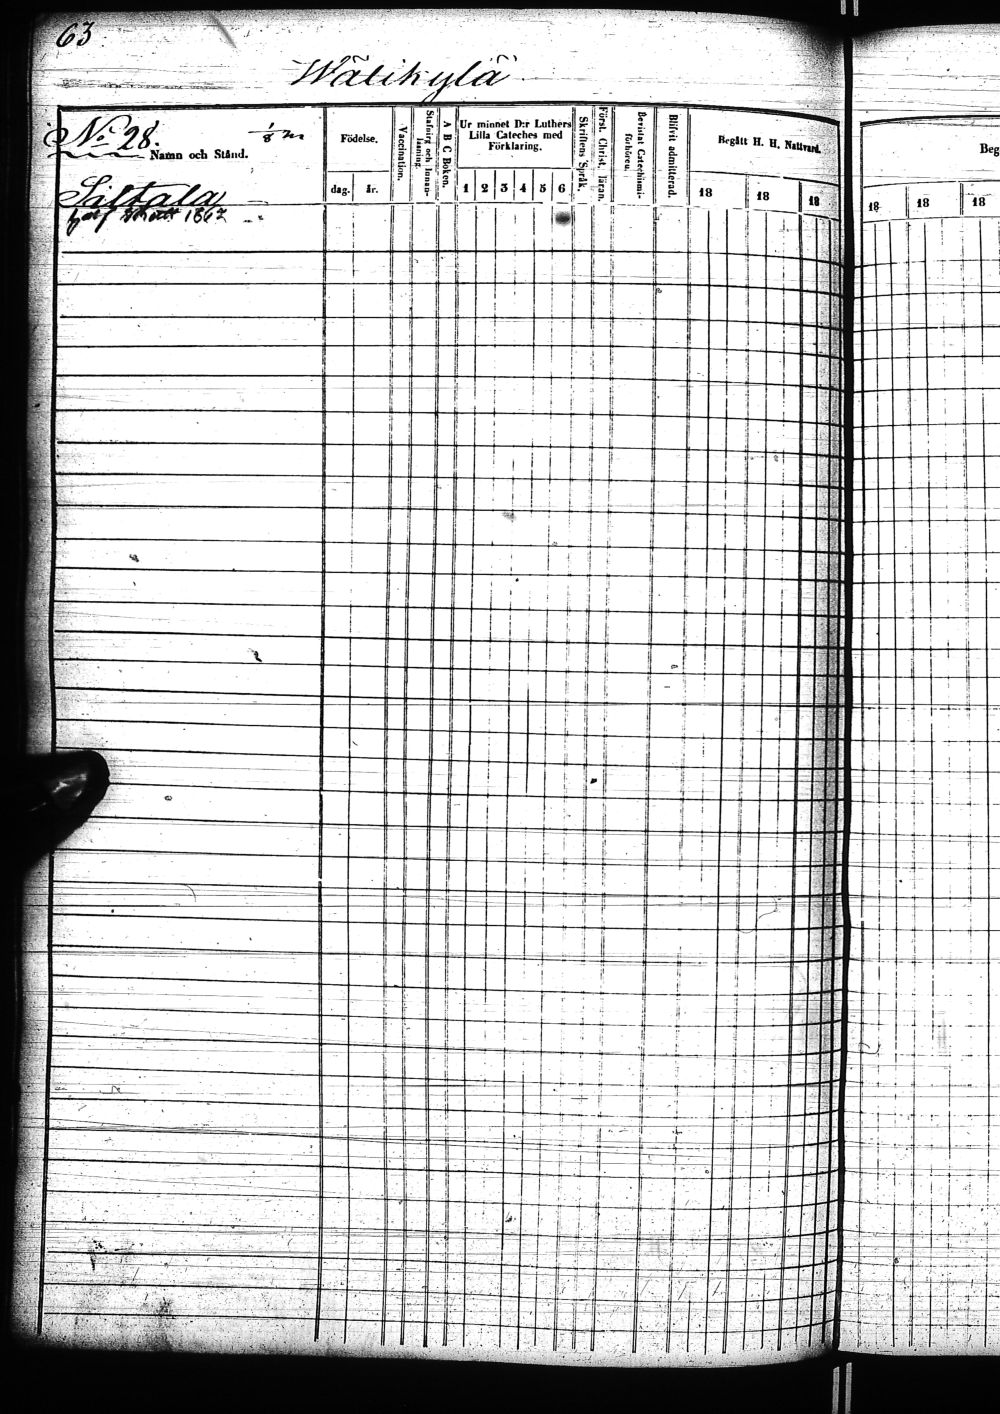 63
Wälikylä
No 28. 1/8 m
Namn och Stånd.
Födelse.
dag. år.
Vaccination.
Stafning och Innanläsning.
A B C Boken.
Ur minnet D:r Luthers
Lilla Cateches med
Förklaring.
1 2 3 4 5 6
Skriftens Språk.
Först. Christ. läran.
Bevistat Catechismi-
förhören.
Blifvit admitterad.
Begått H. H. Nattvard.
18 18 18
Beg
18 18 18
Siltala
1867